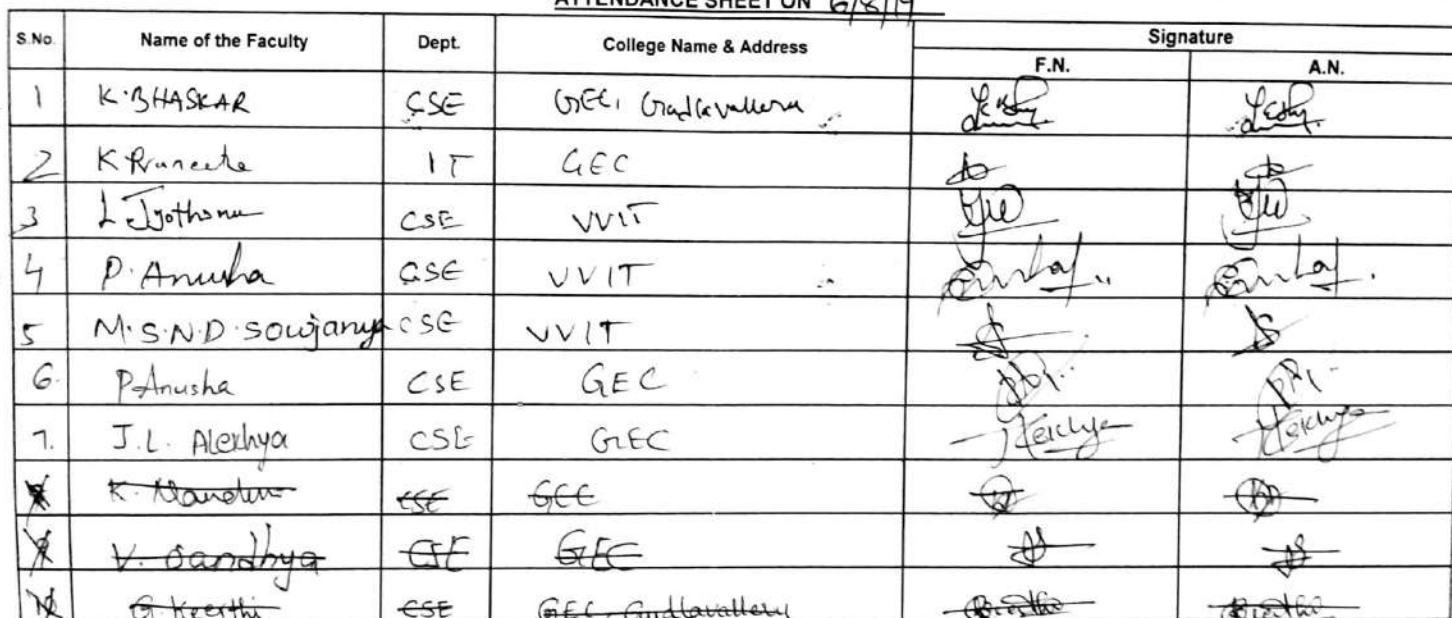 ATTENDANCE SHEET ON 6/8/19
S.No. Name of the Faculty Dept. College Name & Address Signature
F.N. A.N.
1 K. BHASKAR CSE GEC, Gudlavalleru
2 K Praneeta IT GEC
3 L Jyothsna CSE VVIT
4 P. Anusha CSE VVIT
5 M.S.N.D. Sowjanya CSE VVIT
6. P. Anusha CSE GEC
7. J.L. Alekhya CSE GEC Alekhya Alekhya
K. CSE GEC
V. Sandhya CSE GEC
G. Keerthi CSE GEC, Gudlavalleru